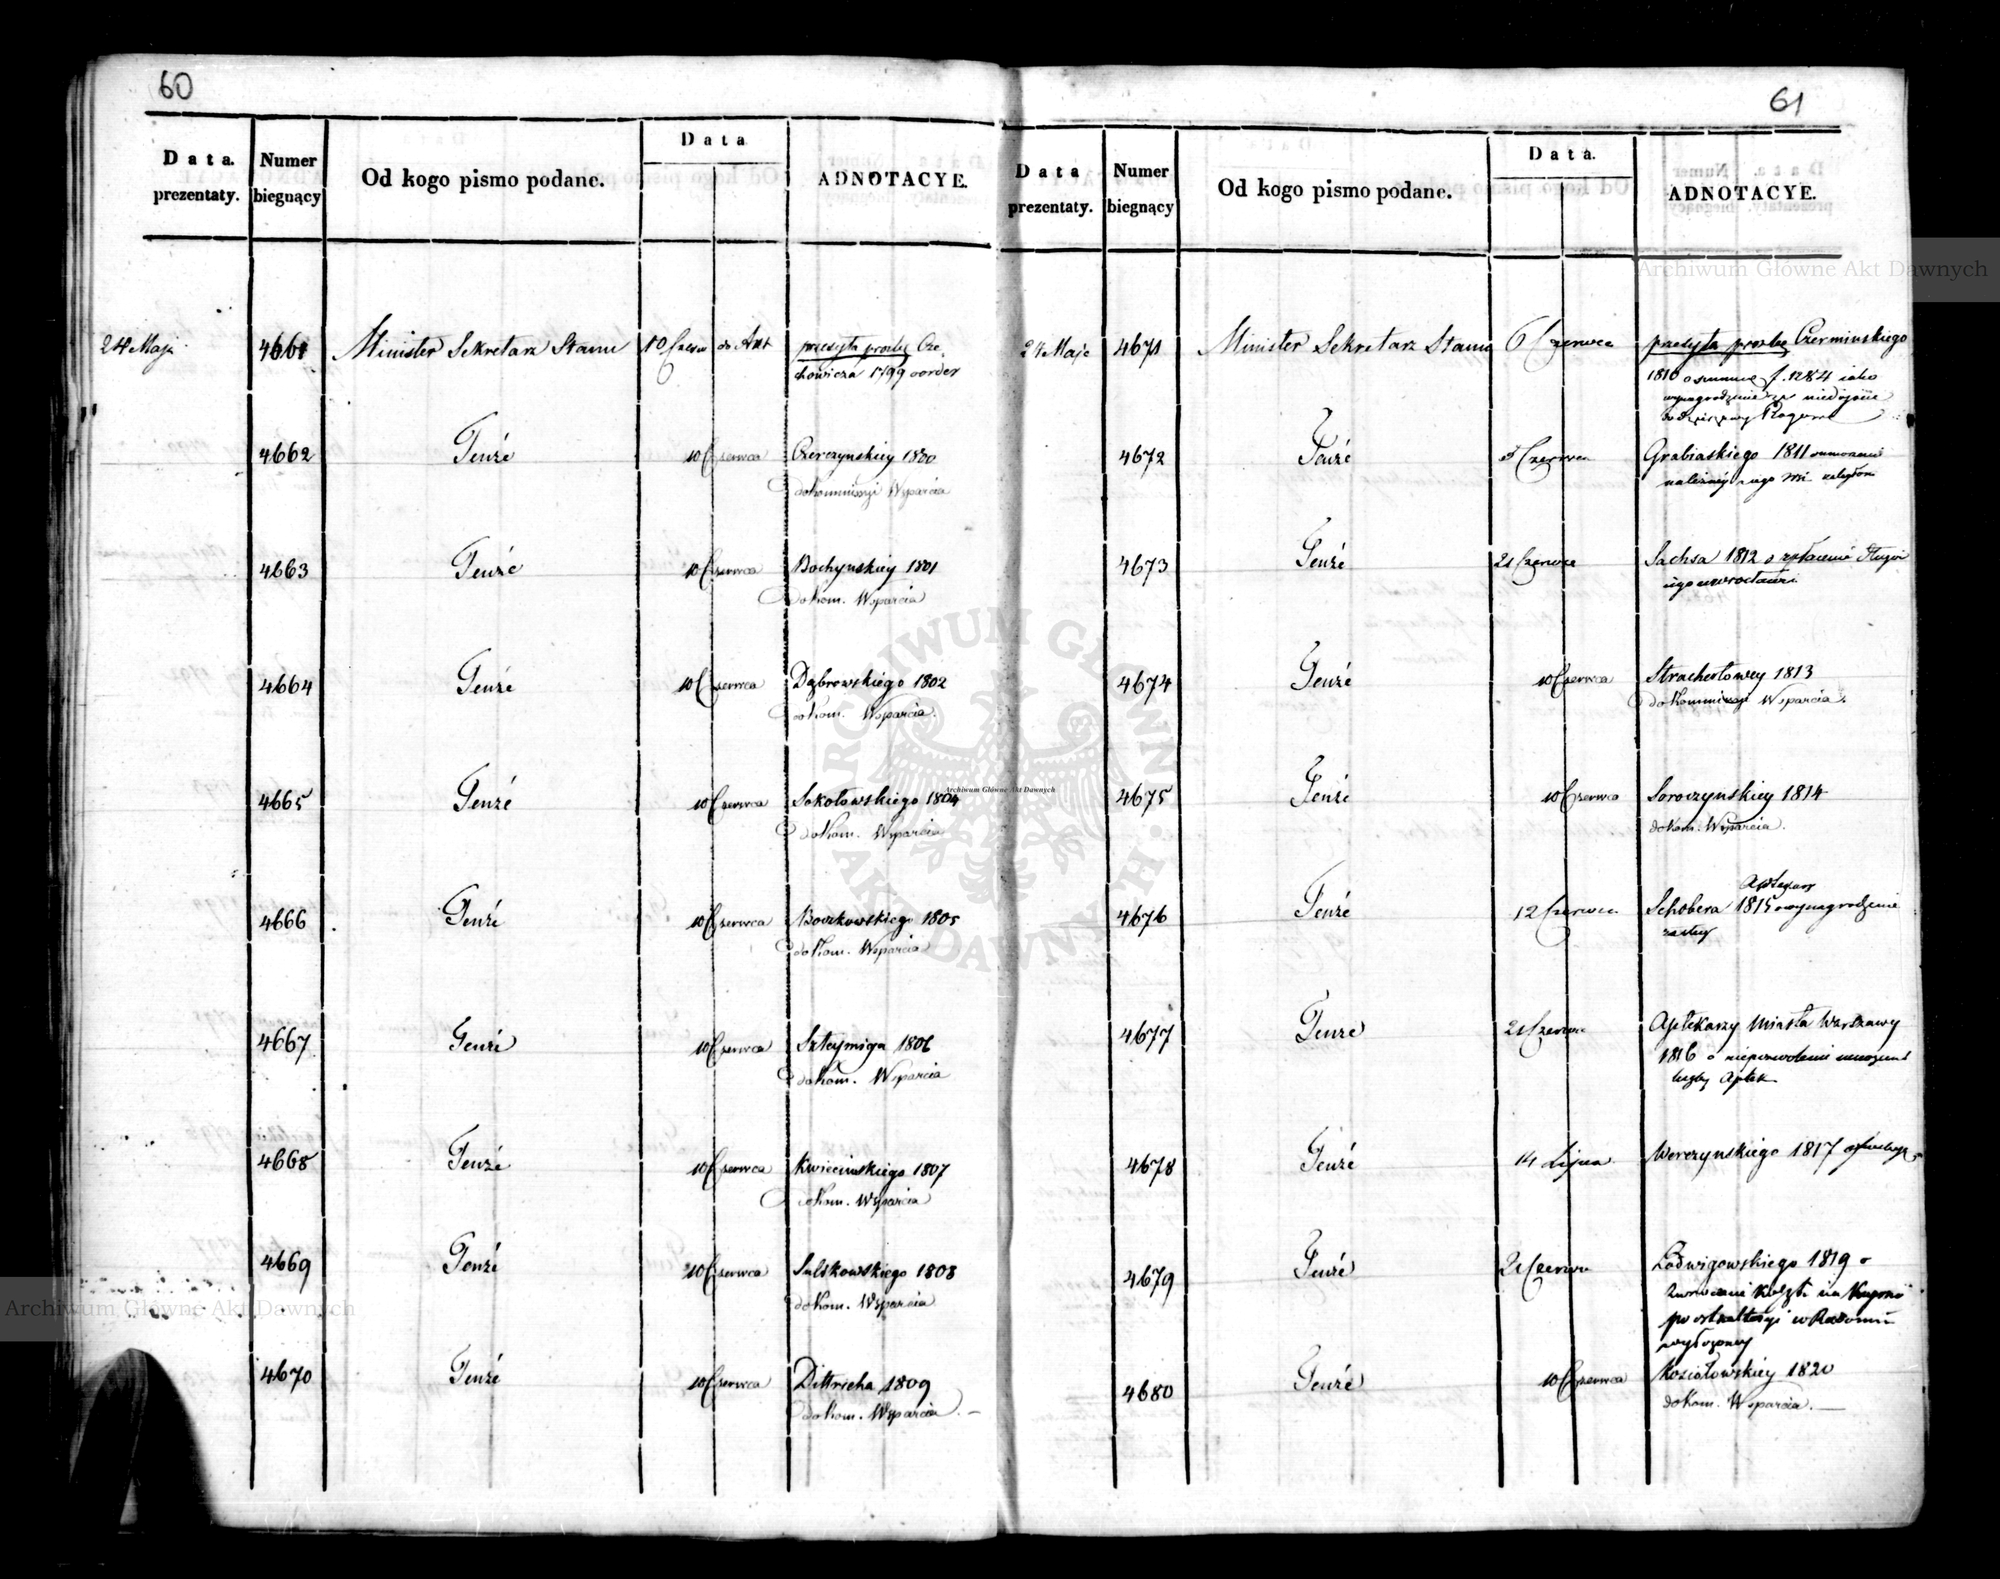 60
Data. prezentaty.
Numer biegnący
Od kogo pismo podane.
Data
ADNOTACYE.
24 Maja 4661 Minister Sekretarz Stanu 10 Czerw do Akt przesyła prosbę Cze-
chowicza 1799 oorder
4662 Tenże 10 Czerwca Czerczynskiey 1800
do Kommissyi Wsparcia
4663 Tenże 10 Czerwca Bochynskiey 1801
do Kom. Wsparcia
4664 Tenże 10 Czerwca Dąbrowskiego 1802
do Kom. Wsparcia.
4665 Tenże 10 Czerwca Sokołowskiego 1804
do Kom. Wsparcia
4666 Tenże 10 Czerwca Boczkowskiego 1805
do Kom. Wsparcia
4667 Tenże 10 Czerwca Szteymiga 1806
do Kom. Wsparcia
4668 Tenże 10 Czerwca Kwiecinskiego 1807
do Kom. Wsparcia
4669 Tenże 10 Czerwca Sulskowskiego 1808
do Kom. Wsparcia
4670 Tenże 10 Czerwca Dittricha 1809
do Kom. Wsparcia. —
61
Data prezentaty.
Numer biegnący
Od kogo pismo podane.
Data.
ADNOTACYE.
24 Maja 4671 Minister Sekretarz Stanu 6 Czerwca przesyła prosbę Czerminskiego
1810 o summę f. 1284 iako
wynagrodzenie za niedojście
4672 Tenże 5 Czerwca Grabiaskiego 1811
4673 Tenże 21 Czerwca Sachsa 1812 o
4674 Tenże 10 Czerwca Strachertowey 1813
do Kommissyi Wsparcia.
4675 Tenże 10 Czerwca Soroczynskiey 1814
do Kom. Wsparcia.
4676 Tenże 12 Czerwca Schobera Aptekarz 1815 o wynagrodzenie
zasług
4677 Tenże 21 Czerwca Aptekarzy Miasta Warszawy
1816 o niepozwolenie
liczby Aptek
4678 Tenże 14 Lipca Werczynskiego 1817
4679 Tenże 21 Czerwca Ludwigowskiego 1819 o
4680 Tenże 10 Czerwca Kosiałowskiey 1820
do Kom. Wsparcia. —
Archiwum Główne Akt Dawnych
Archiwum Główne Akt Dawnych
ARCHIWUM GŁÓWNE AKT DAWNYCH
Archiwum Główne Akt Dawnych